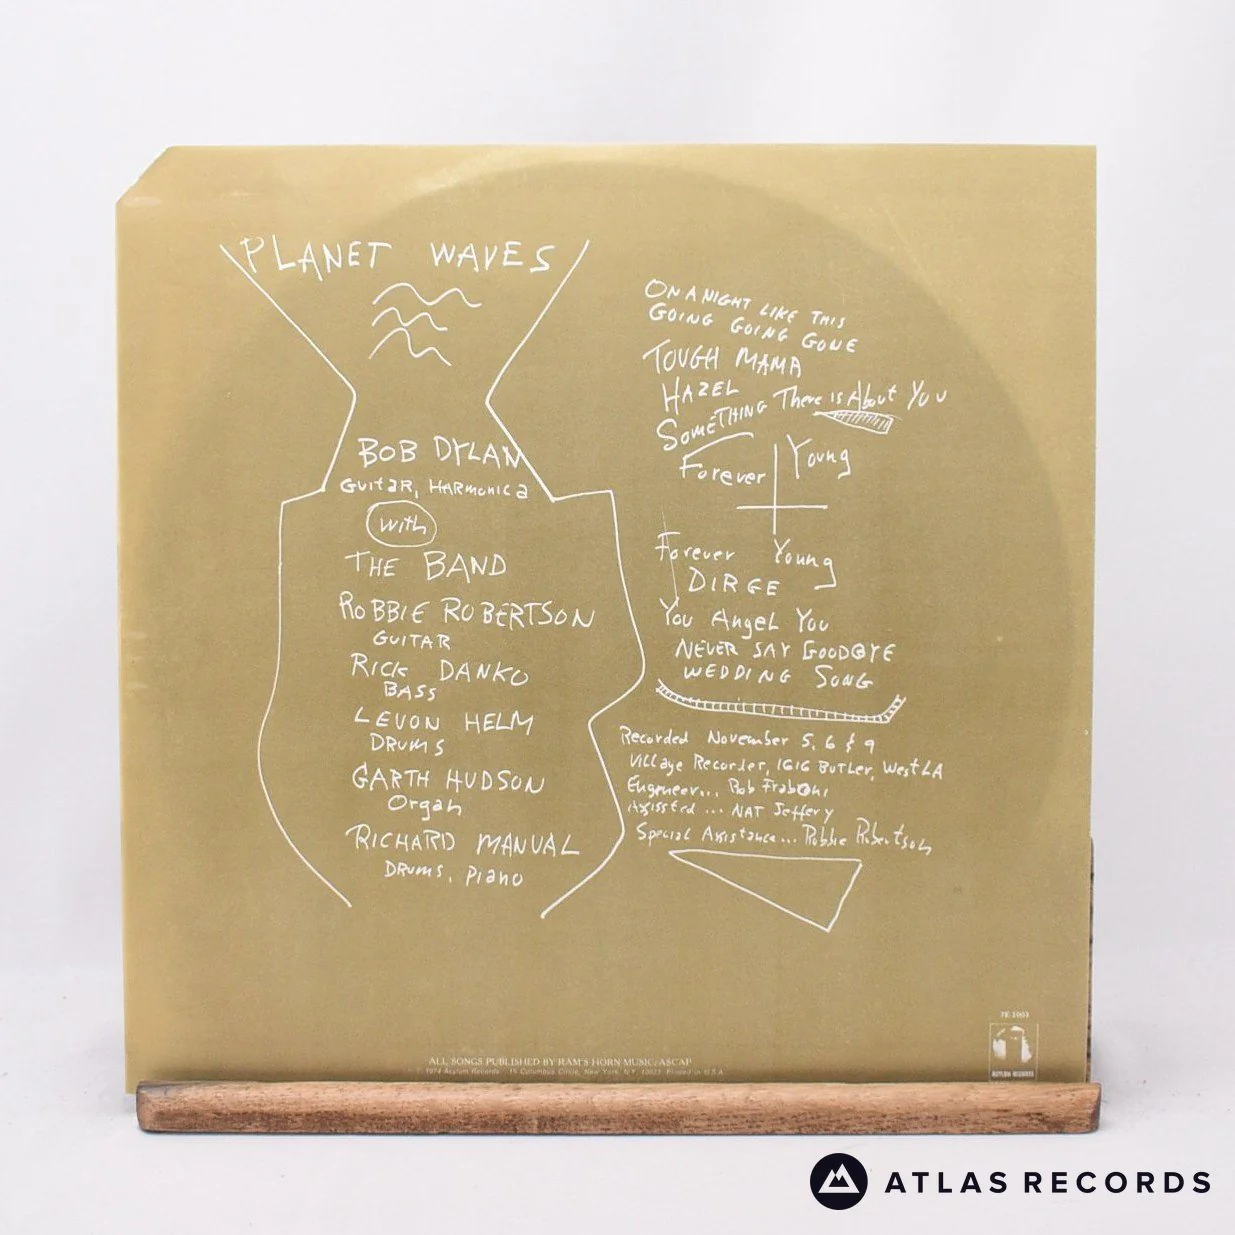 PLANET WAVES
BOB DYLAN
GuitaR, HARmonica
with
THE BAND
ROBBIE ROBERTSON
GUITAR
RICK DANKO
BASS
LEVON HELM
DRUMS
GARTH HUDSON
Organ
RICHARD MANUAL
DRUMS, Piano
ON A NIGHT LIKE THIS
GOING GOING GONE
TOUGH MAMA
HAZEL
SOMETHING There is About You
Forever Young
Forever Young
DIRGE
You Angel You
NEVER SAY GOODBYE
WEDDING SONG
Recorded November 5, 6 & 9
Village Recorder, 1616 BUTLER, West LA
Engeneer... Bob Fraboni
Assisted ... NAT Jeffery
Special Assistance... Robbie Robertson
7E-1003
ASYLUM RECORDS
ALL SONGS PUBLISHED BY RAM'S HORN MUSIC/ASCAP
© 1974 Asylum Records · 15 Columbus Circle, New York, N.Y. 10023 Printed in U.S.A.
ATLAS RECORDS